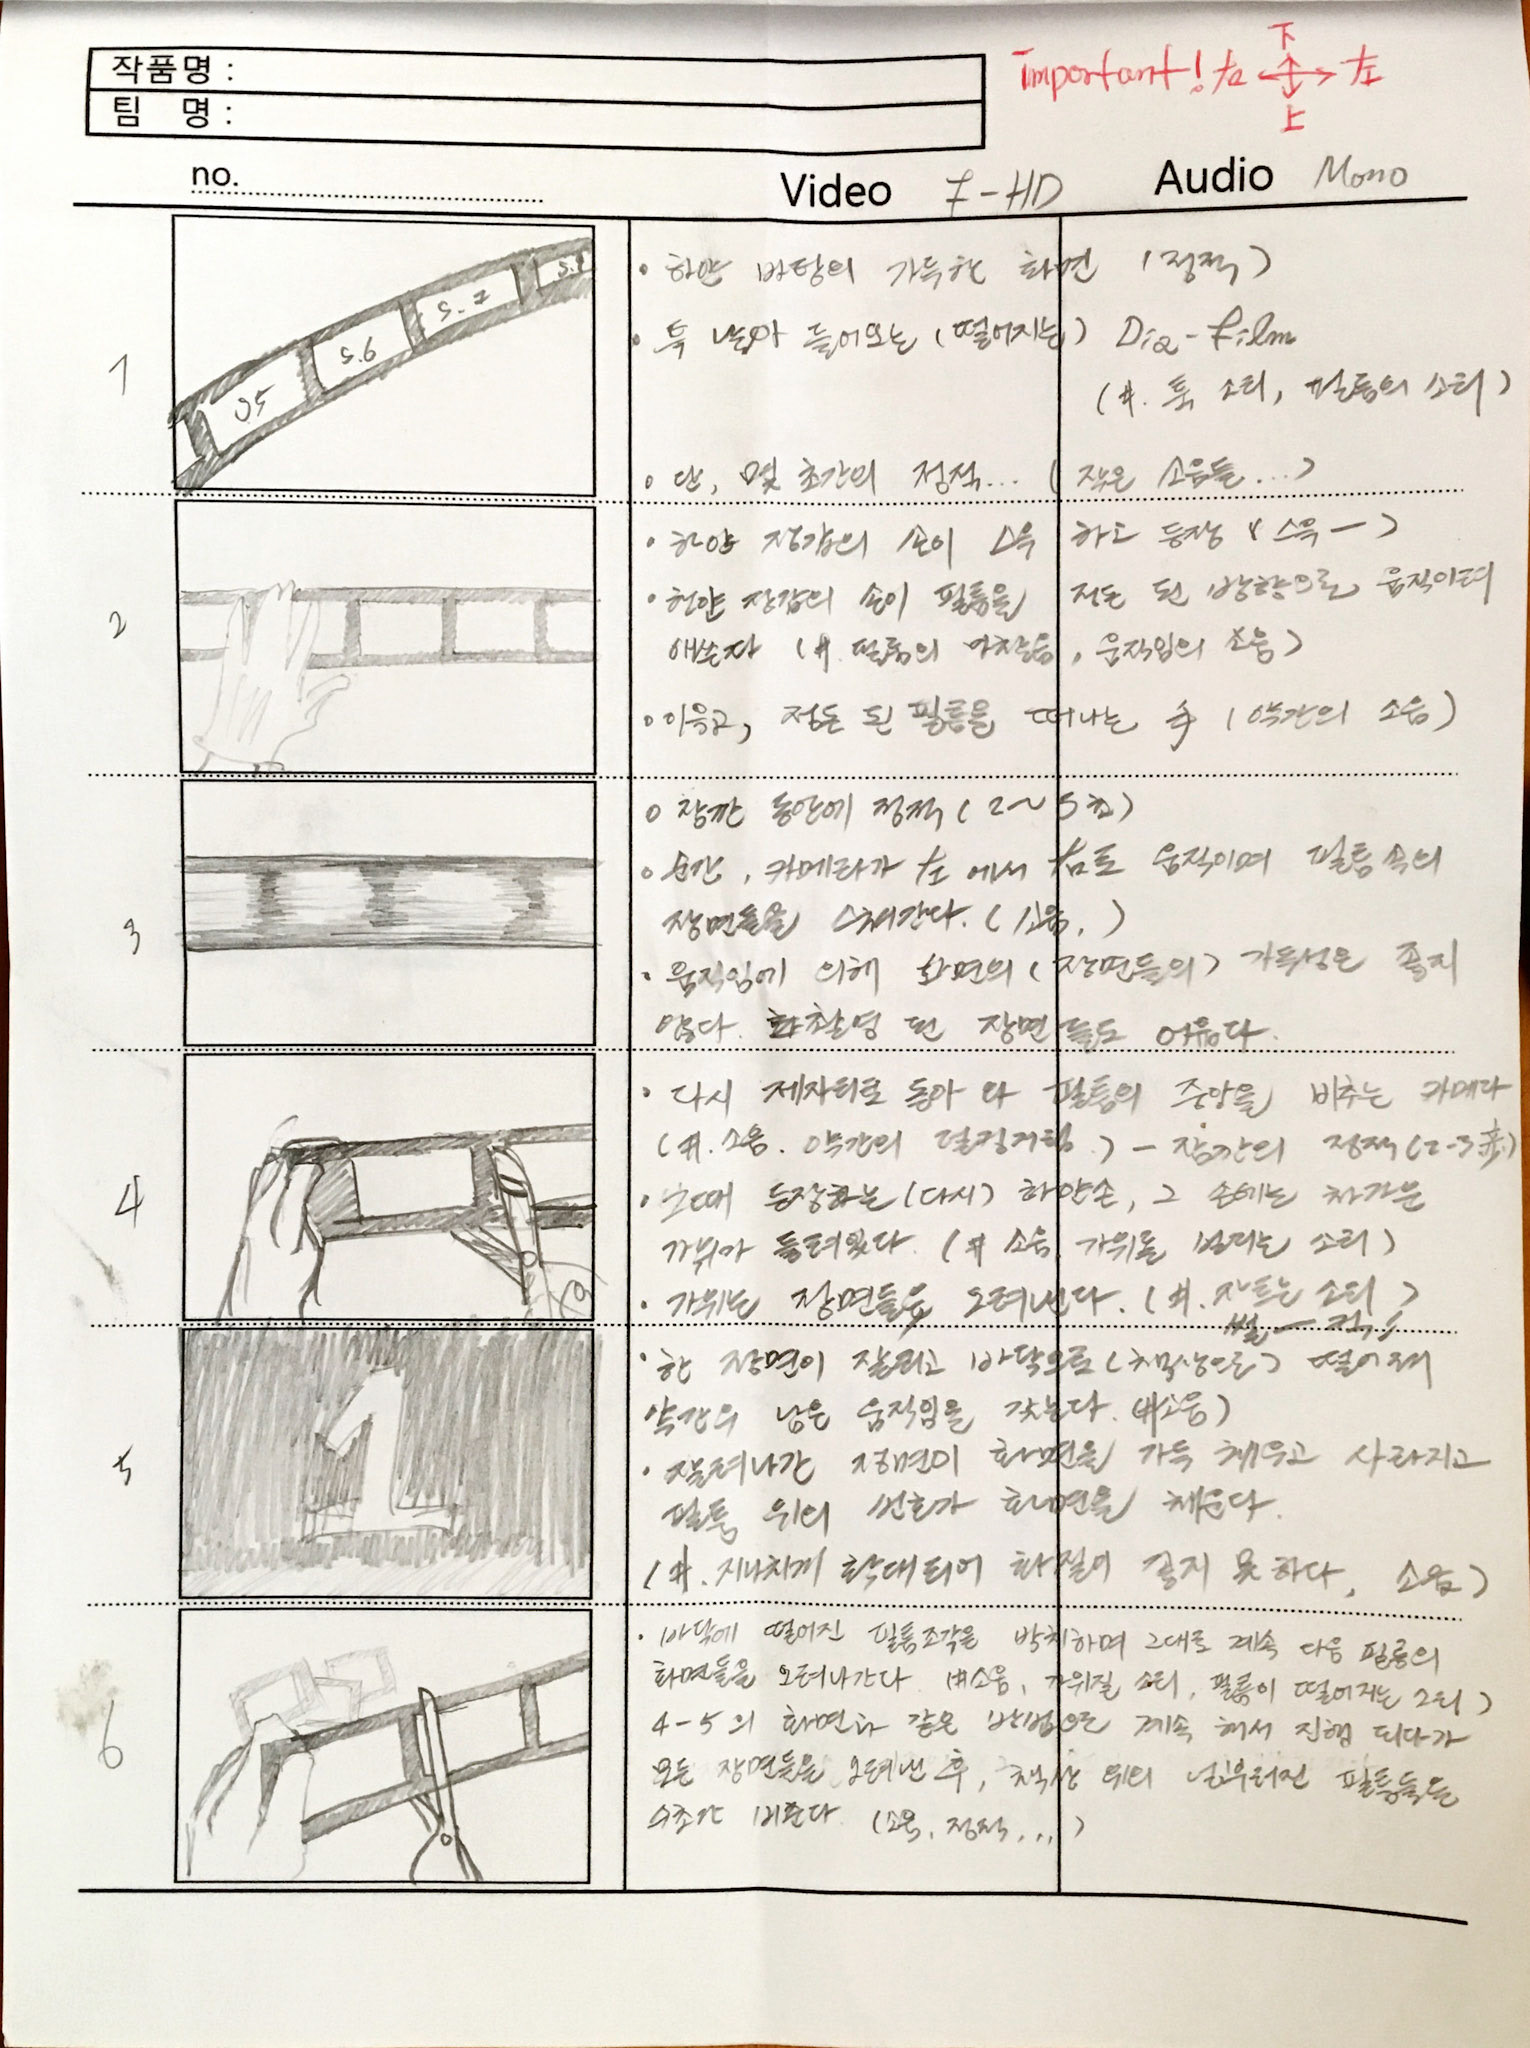 작품명 :
팀 명 :
Important! 右 左
下
上
no.
Video F-HD
Audio Mono
1
S.5 S.6 S.7 S.8
• 하얀 바탕의 가득한 화면 (정적)
• 툭 날아 들어오는 (떨어지는) Dia-Film
(#. 툭 소리, 필름의 소리)
• 단, 몇 초간의 정적... (작은 소음들...)
2
• 하얀 장갑의 손이 스윽 하고 등장 (스윽ー)
• 하얀 장갑의 손이 필름을 정돈 된 방향으로 움직이며
애쓴다 (#. 필름의 마찰음, 움직임의 소음)
• 이윽고, 정돈 된 필름을 떠나는 손 (약간의 소음)
3
• 잠깐 동안에 정적 (2~5초)
• 순간, 카메라가 左에서 右로 움직이며 필름속의
장면들을 스쳐간다. (소음.)
• 움직임에 의해 화면의 (장면들의) 가독성은 좋지
않다. 촬영 된 장면들도 어둡다.
4
• 다시 제자리로 돌아 와 필름의 중앙을 비추는 카메라
(#. 소음. 약간의 덜컹거림.) – 잠깐의 정적 (2-3초)
• 그때 등장하는 (다시) 하얀손, 그 손에는 차가운
가위가 들려있다. (# 소음. 가위를 벌리는 소리)
• 가위는 장면들을 오려낸다. (#. 자르는 소리)
썰ー 걱!
5
• 한 장면이 잘리고 바닥으로 (책상으로) 떨어져
약간의 남은 움직임을 갖는다. (#소음)
• 잘려나간 장면이 화면을 가득 채우고 사라지고
필름 위의 번호가 화면을 채운다.
(#. 지나치게 확대되어 화질이 좋지 못하다, 소음)
6
• 바닥에 떨어진 필름조각을 방치하며 그대로 계속 다음 필름의
화면들을 오려나간다. (#소음, 가위질 소리, 필름이 떨어지는 소리)
4-5의 화면과 같은 방법으로 계속 해서 진행 되다가
모든 장면들을 오려낸 후, 책상 위의 널부러진 필름들을
수초간 비춘다. (소음, 정적...)